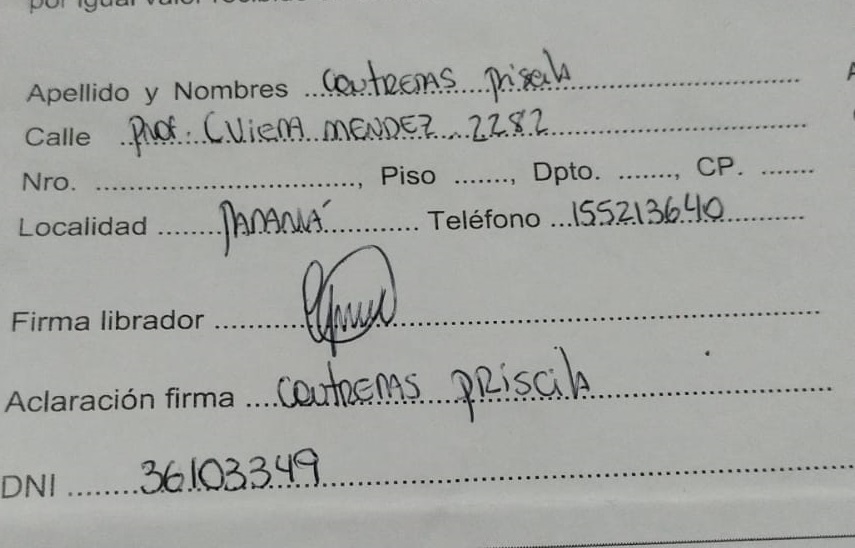 por igual valor recibido
Apellido y Nombres ...Contreras Priscila
Calle ..Prof. Cviera MENDEZ 2282
Nro. ...................................., Piso ......., Dpto. ......., CP. .......
Localidad .......PARANÁ............ Teléfono ...155213640
Firma librador
Aclaración firma ....Contreras PRiscila
DNI ........36103349